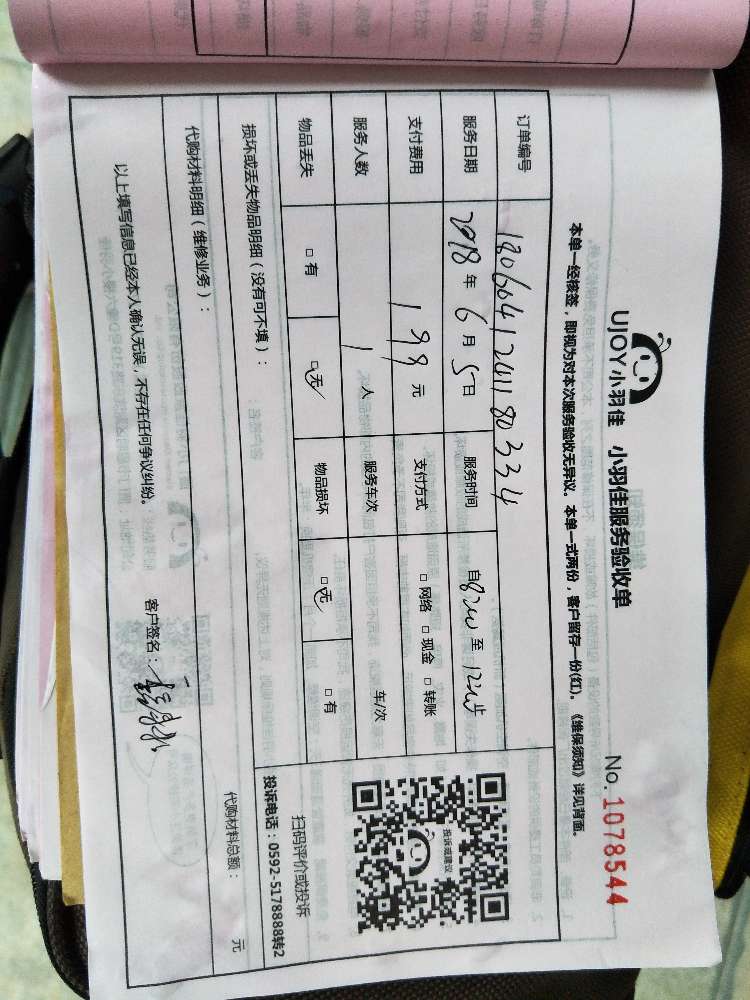 UJOY小羽佳 小羽佳服务验收单
No. 1078544
本单一经核签，即视为对本次服务验收无异议。本单一式两份，客户留存一份(红)。《维保须知》详见背面。
订单编号 180604124118033 4
服务日期 2018 年 6 月 5 日 服务时间 自 8:00 至 12:00止
支付费用 198 元 支付方式 □ 网络 □ 现金 □ 转账
服务人数 1 人 服务车次 车/次
物品丢失 □ 有 □ 无 物品损坏 □ 无 □ 有
投诉或建议
扫码评价或投诉
投诉电话：0592-5178888转2
损坏或丢失物品明细（没有可不填）：
代购材料明细（维修业务）： 代购材料总额： 元
以上填写信息已经本人确认无误，不存在任何争议纠纷。 客户签名：